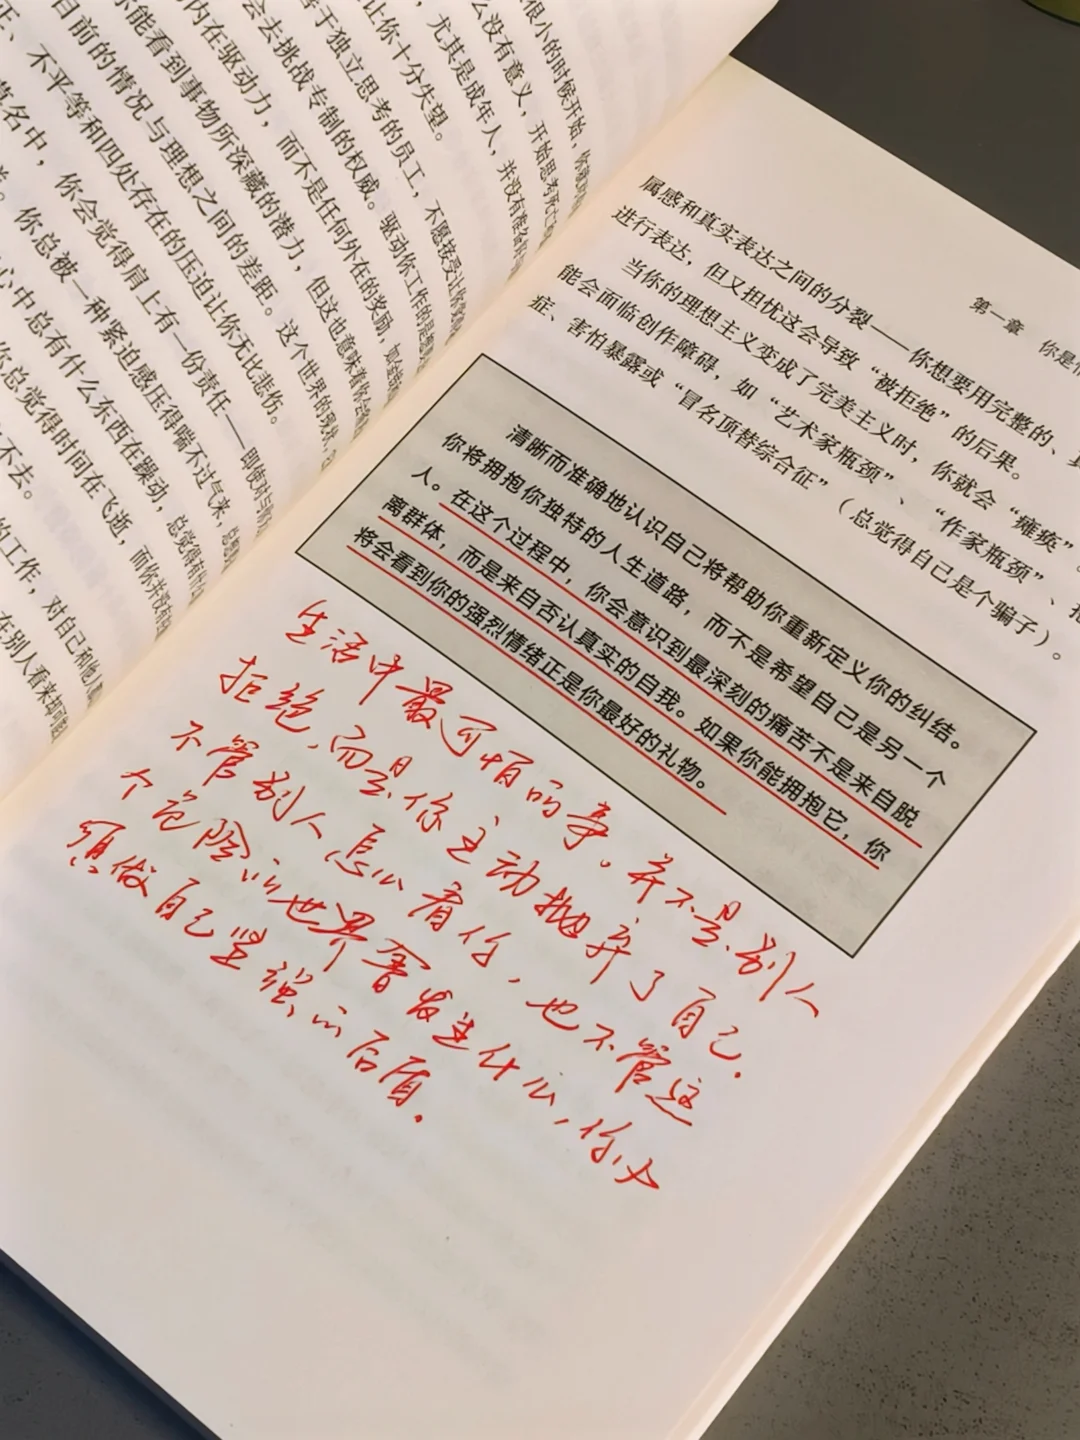 很小的时候开始，你就
么没有意义，开始思考死亡
，尤其是成年人，并没有准备
让你十分失望。
善于独立思考的员工，不愿接受让你
会去挑战专制的权威。驱动你工作的是
内在驱动力，而不是任何外在的奖励，如
能看到事物所深藏的潜力，但这也意味着你会
目前的情况与理想之间的差距。这个世界的现状、
正、不平等和四处存在的压迫让你无比悲伤。
莫名中，你会觉得肩上有一份责任——即使
你总被一种紧迫感压得喘不过气来，总
心中总有什么东西在躁动，总觉得有什
你总觉得时间在飞逝，而你并没有
不去。
的工作，对自己和他人
在别人看来却可
第一章 你是
属感和真实表达之间的分裂——你想要用完整的、真
进行表达，但又担忧这会导致“被拒绝”的后果。
当你的理想主义变成了完美主义时，你就会“瘫痪”。
能会面临创作障碍，如“艺术家瓶颈”、“作家瓶颈”、拖
症、害怕暴露或“冒名顶替综合征”（总觉得自己是个骗子）。
清晰而准确地认识自己将帮助你重新定义你的纠结。
你将拥抱你独特的人生道路，而不是希望自己是另一个
人。在这个过程中，你会意识到最深刻的痛苦不是来自脱
离群体，而是来自否认真实的自我。如果你能拥抱它，你
将会看到你的强烈情绪正是你最好的礼物。
生活中最可怕的事。并不是别人
拒绝，而是你主动抛弃了自己.
不管别人怎么看你，也不管这
个危险的世界会发生什么，你必
须做自己坚强的后盾.